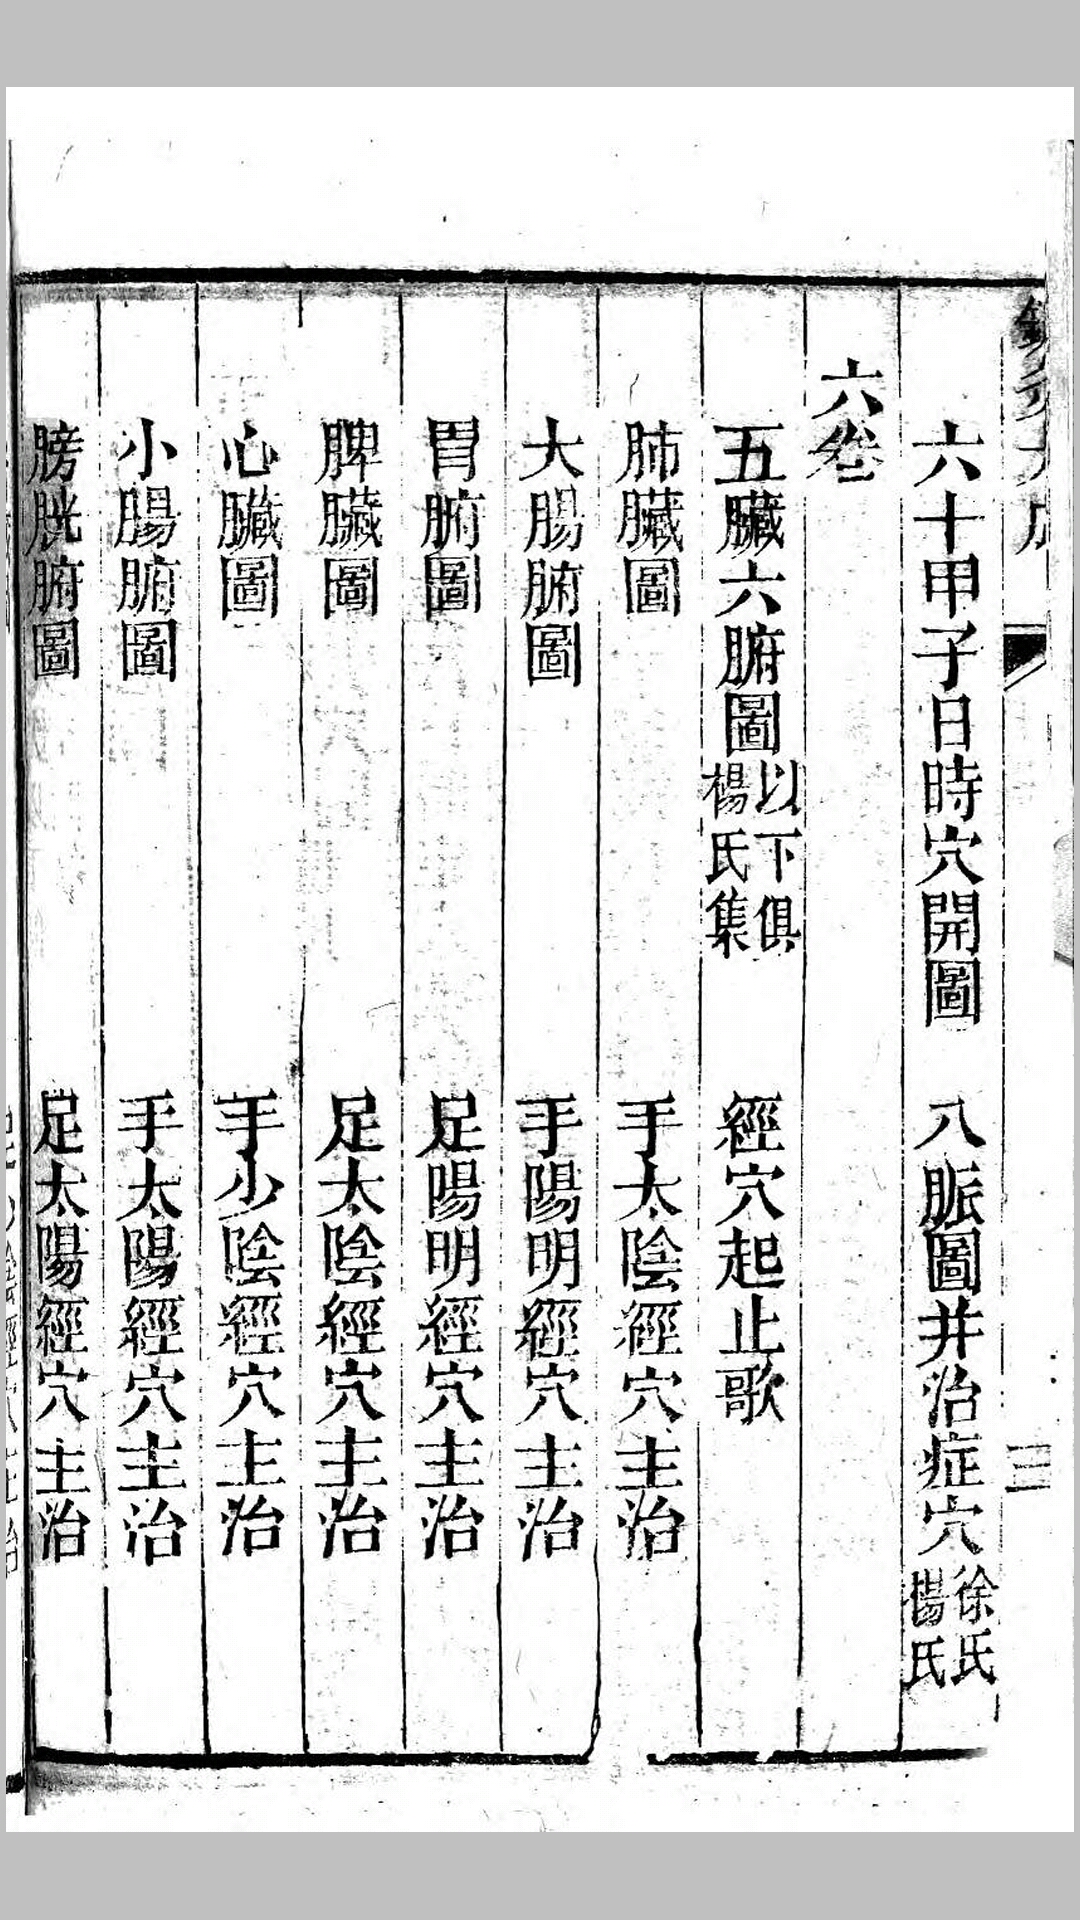 六十甲子日時穴開圖　八脈圖并治症穴　徐氏
楊氏
六卷
五臟六腑圖　以下俱
楊氏集　經穴起止歌
肺臟圖　手太陰經穴主治
大腸腑圖　手陽明經穴主治
胃腑圖　足陽明經穴主治
脾臟圖　足太陰經穴主治
心臟圖　手少陰經穴主治
小腸腑圖　手太陽經穴主治
膀胱腑圖　足太陽經穴主治